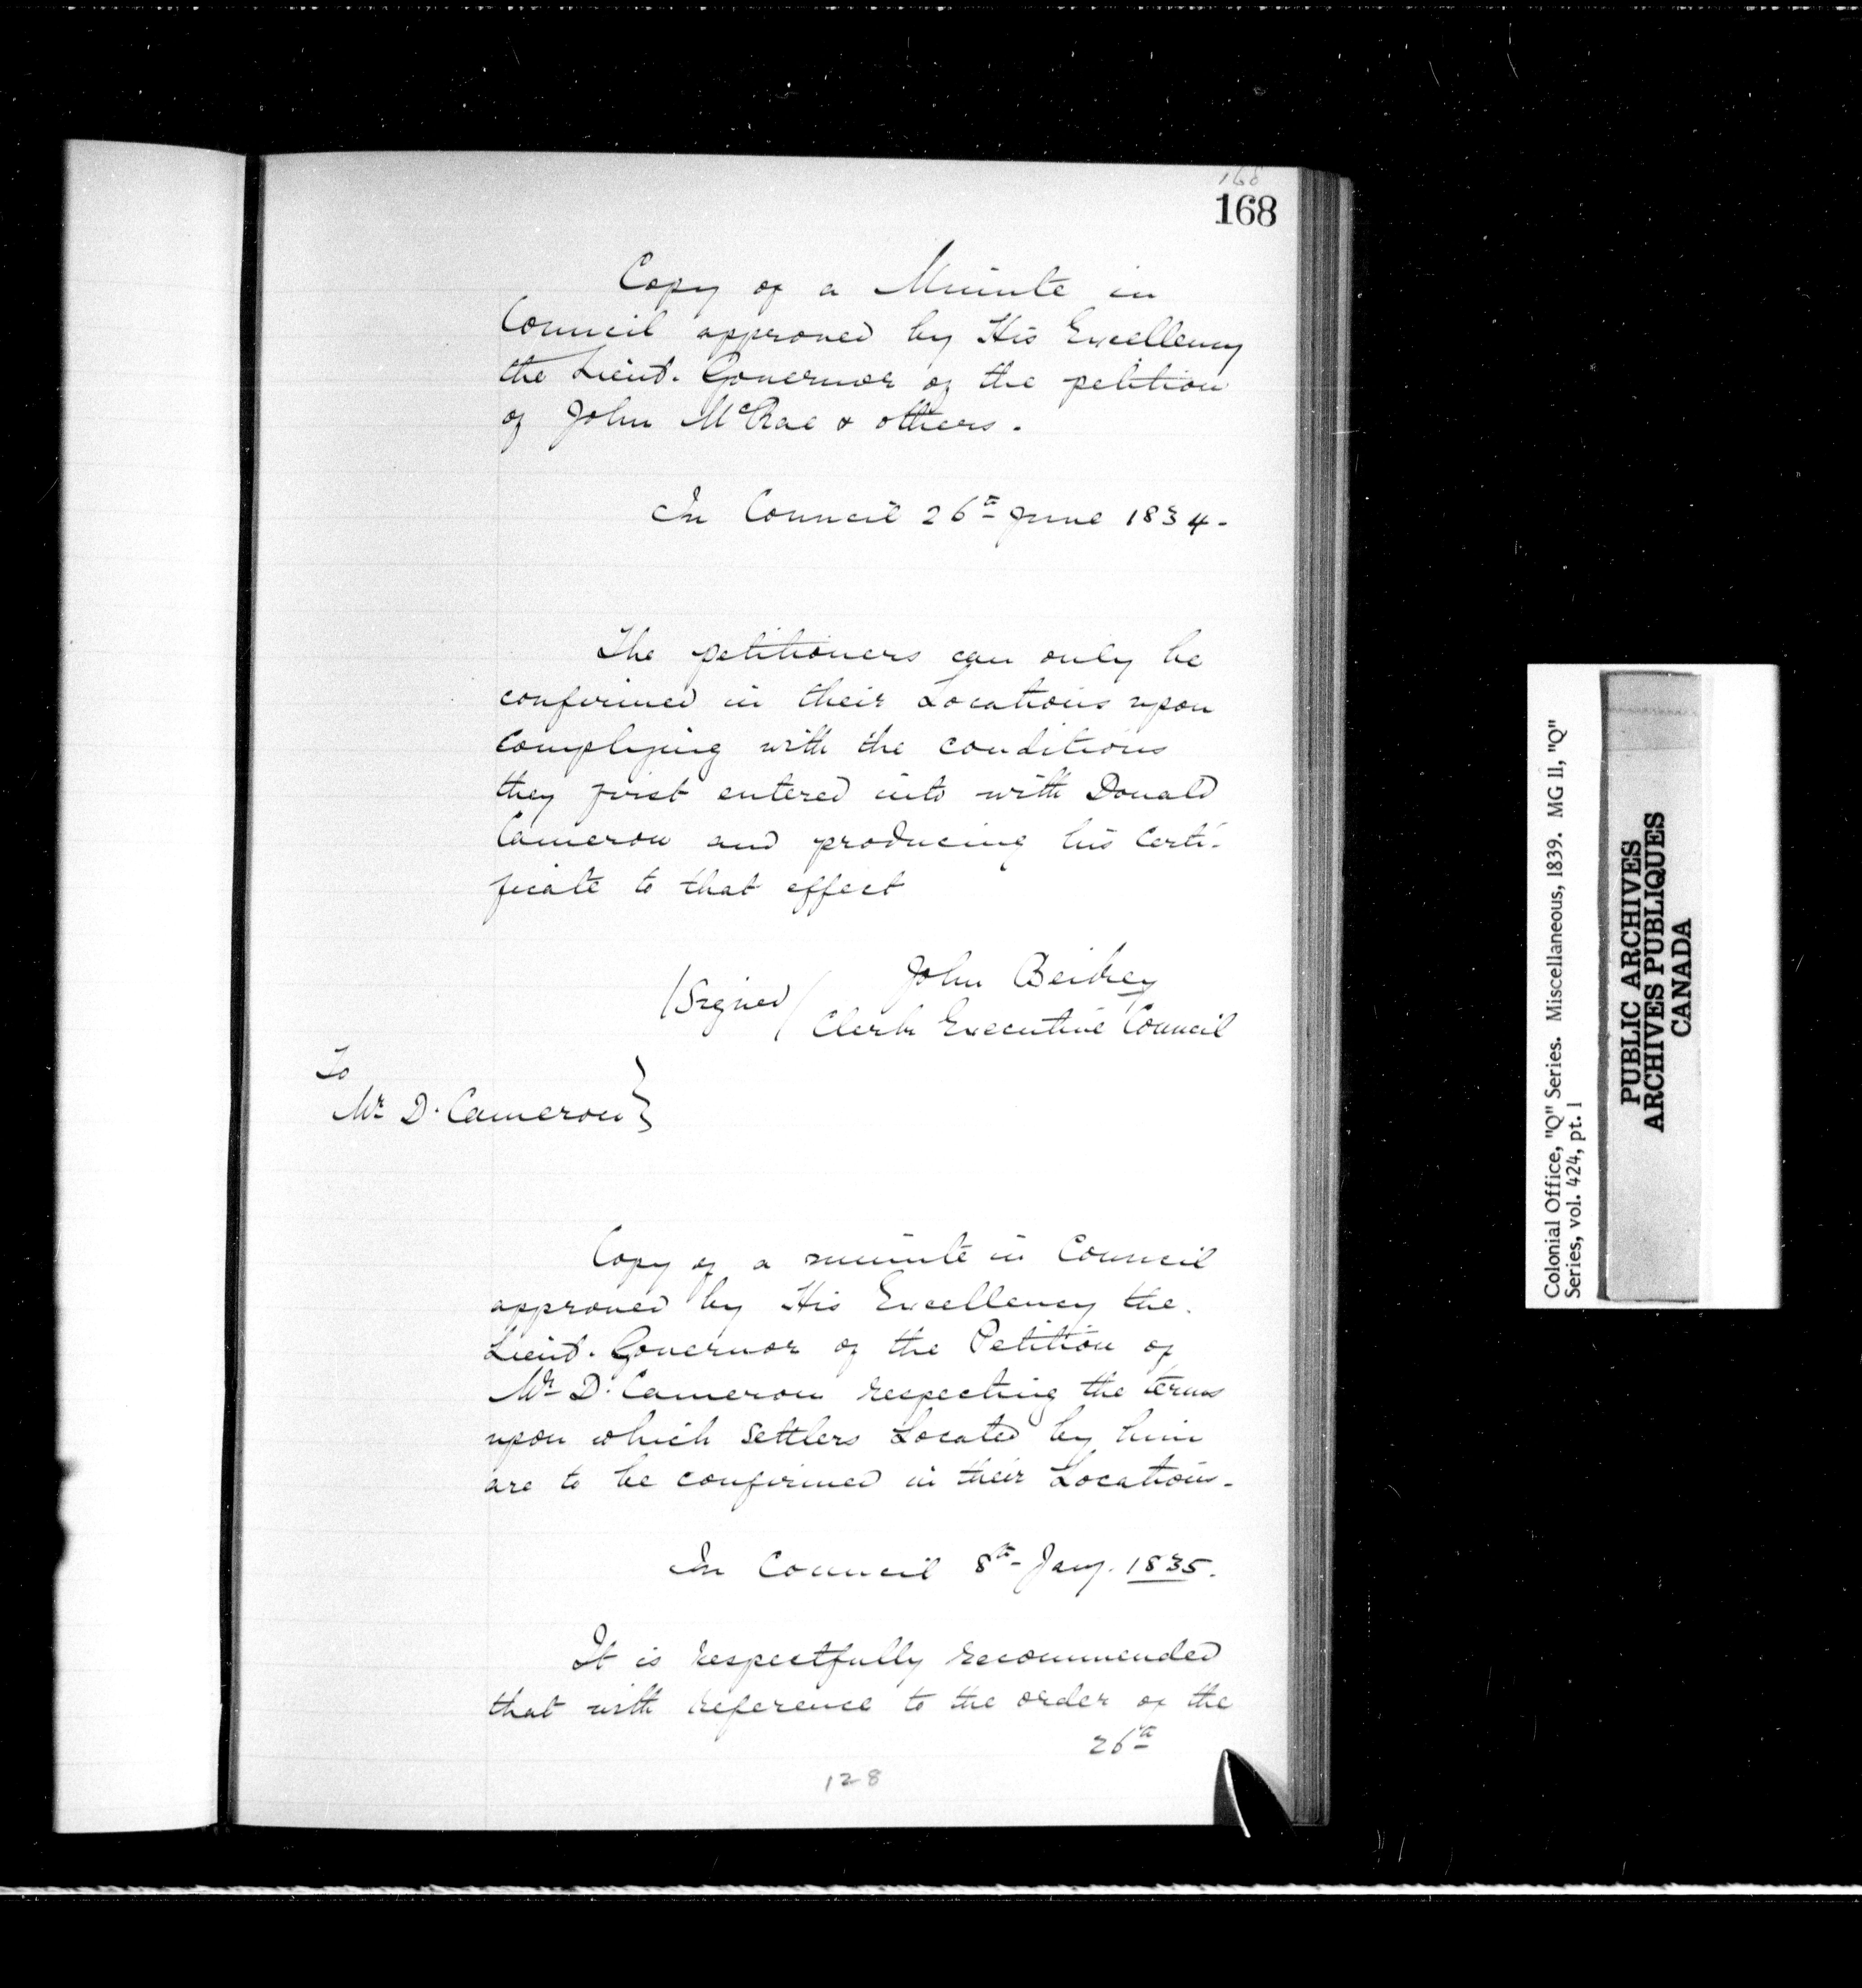 168
168
Copy of a Minute in
Council approved by His Excellency
the Lieut. Governor of the petition
of John McRae & others.
In Council 26th June 1834.
The petitioners can only be
confirmed in their Locations upon
Complying with the conditions
they first entered into with Donald
Cameron and producing his Certi-
ficate to that effect
(Signed) John Beikey
Clerk Executive Council
To
Mr D. Cameron }
Copy of a minute in Council
approved by His Excellency the
Lieut. Governor of the Petition of
Mr D. Cameron respecting the terms
upon which Settlers Located by him
are to be confirmed in their Locations.
In Council 8th Jany. 1835.
It is respectfully recommended
that with reference to the order of the
26th
128
Colonial Office, "Q" Series. Miscellaneous, 1839. MG 11, "Q"
Series, vol. 424, pt. 1
PUBLIC ARCHIVES
ARCHIVES PUBLIQUES
CANADA